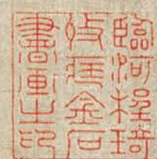 臨河程琦
攷定金石
書畫之印